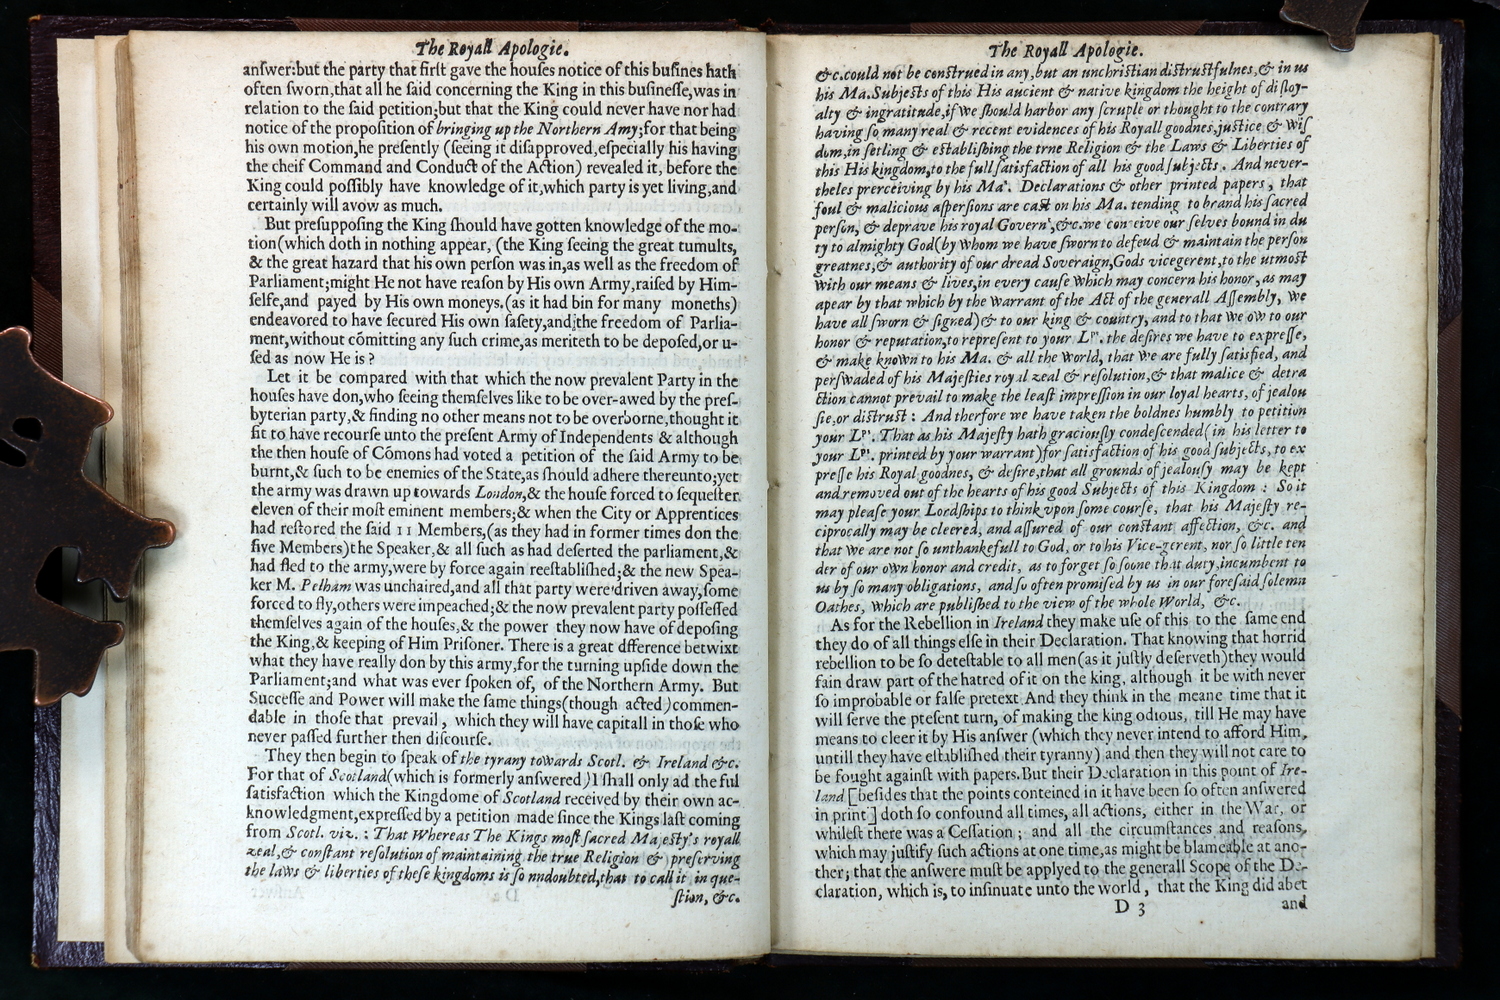 The Royall Apologie.
anſwer:but the party that firſt gave the houſes notice of this buſines hath
often ſworn,that all he ſaid concerning the King in this buſineſſe,was in
relation to the ſaid petition;but that the King could never have nor had
notice of the propoſition of bringing up the Northern Amy;for that being
his own motion,he preſently (ſeeing it diſapproved,eſpecially his having
the cheif Command and Conduct of the Action) revealed it, before the
King could poſſibly have knowledge of it,which party is yet living,and
certainly will avow as much.
But preſuppoſing the King ſhould have gotten knowledge of the mo-
tion(which doth in nothing appear, (the King ſeeing the great tumults,
& the great hazard that his own perſon was in,as well as the freedom of
Parliament;might He not have reaſon by His own Army,raiſed by Him-
ſelfe,and payed by His own moneys.(as it had bin for many moneths)
endeavored to have ſecured His own ſafety,and the freedom of Parlia-
ment,without cōmitting any ſuch crime,as meriteth to be depoſed,or u-
ſed as now He is ?
Let it be compared with that which the now prevalent Party in the
houſes have don,who ſeeing themſelves like to be over-awed by the preſ-
byterian party,& finding no other means not to be overborne,thought it
fit to have recourſe unto the preſent Army of Independents & although
the then houſe of Cōmons had voted a petition of the ſaid Army to be
burnt,& ſuch to be enemies of the State,as ſhould adhere thereunto;yet
the army was drawn up towards London,& the houſe forced to ſequeſter
eleven of their moſt eminent members;& when the City or Apprentices
had reſtored the ſaid 11 Members,(as they had in former times don the
five Members)the Speaker,& all ſuch as had deſerted the parliament,&
had fled to the army,were by force again reeſtabliſhed;& the new Spea-
ker M. Pelham was unchaired,and all that party were driven away,ſome
forced to fly,others were impeached;& the now prevalent party poſſeſſed
themſelves again of the houſes,& the power they now have of depoſing
the King,& keeping of Him Priſoner. There is a great dfference betwixt
what they have really don by this army,for the turning upſide down the
Parliament;and what was ever ſpoken of, of the Northern Army. But
Succeſſe and Power will make the ſame things(though acted)commen-
dable in thoſe that prevail, which they will have capitall in thoſe who
never paſſed further then diſcourſe.
They then begin to ſpeak of the tyrany towards Scotl. & Ireland &c.
For that of Scotland(which is formerly anſwered)I ſhall only ad the ful
ſatisfaction which the Kingdome of Scotland received by their own ac-
knowledgment,expreſſed by a petition made ſince the Kings laſt coming
from Scotl. viz. : That Whereas The Kings moſt ſacred Majeſty's royall
zeal,& conſtant reſolution of maintaining the true Religion & preſerving
the laws & liberties of theſe kingdoms is ſo nndoubted,that to call it in que-
ſtion, &c.
The Royall Apologie.
&c.could not be conſtrued in any,but an unchriſtian diſtruſtfulnes,& in us
his Ma.Subjects of this His ancient & native kingdom the height of diſloy-
alty & ingratitude,if we ſhould harbor any ſcruple or thought to the contrary
having ſo many real & recent evidences of his Royall goodnes,juſtice & wiſ
dom,in ſetling & eſtabliſhing the trne Religion & the Laws & Liberties of
this His kingdom,to the full ſatisfaction of all his good ſubjects. And never-
theles perceiving by his Maˢ. Declarations & other printed papers, that
foul & malicious aſperſions are caſt on his Ma. tending to brand his ſacred
perſon, & deprave his royal Govern',&c.we conceive our ſelves bound in du
ty to almighty God(by Whom we have ſworn to defeud & maintain the perſon
greatnes,& authority of our dread Soveraign,Gods vicegerent,to the utmoſt
with our means & lives,in every cauſe which may concern his honor,as may
apear by that which by the warrant of the Act of the generall Aſſembly, we
have all ſworn & ſigned)& to our king & country, and to that we ow to our
honor & reputation,to repreſent to your Lᵖˢ. the deſires we have to expreſſe,
& make known to his Ma. & all the world, that we are fully ſatisfied, and
perſwaded of his Majeſties royal zeal & reſolution,& that malice & detra
ction cannot prevail to make the leaſt impreſſion in our loyal hearts, of jealou
ſie,or diſtruſt : And therfore we have taken the boldnes humbly to petition
your Lᵖˢ. That as his Majeſty hath graciouſly condeſcended( in his letter to
your Lᵖˢ. printed by your warrant)for ſatisfaction of his good ſubjects, to ex
preſſe his Royal goodnes, & deſire,that all grounds of jealouſy may be kept
and removed out of the hearts of his good Subjects of this Kingdom : So it
may pleaſe your Lordſhips to think vpon ſome courſe, that his Majeſty re-
ciprocally may be cleered, and aſſured of our conſtant affection, &c. and
that we are not ſo unthankefull to God, or to his Vice-gerent, nor ſo little ten
der of our own honor and credit, as to forget ſo ſoone that duty,incumbent to
us by ſo many obligations, and ſo often promiſed by us in our foreſaid ſolemn
Oathes, which are publiſhed to the view of the whole World, &c.
As for the Rebellion in Ireland they make uſe of this to the ſame end
they do of all things elſe in their Declaration. That knowing that horrid
rebellion to be ſo deteſtable to all men(as it juſtly deſerveth)they would
fain draw part of the hatred of it on the king, although it be with never
ſo improbable or falſe pretext And they think in the meane time that it
will ſerve the preſent turn, of making the king odious, till He may have
means to cleer it by His anſwer (which they never intend to afford Him,
untill they have eſtabliſhed their tyranny) and then they will not care to
be fought againſt with papers.But their Declaration in this point of Ire-
land [beſides that the points conteined in it have been ſo often anſwered
in print] doth ſo confound all times, all actions, either in the War, or
whileſt there was a Ceſſation ; and all the circumſtances and reaſons,
which may juſtify ſuch actions at one time,as might be blameable at ano-
ther; that the anſwere muſt be applyed to the generall Scope of the De-
claration, which is, to inſinuate unto the world, that the King did abet
D 3 and